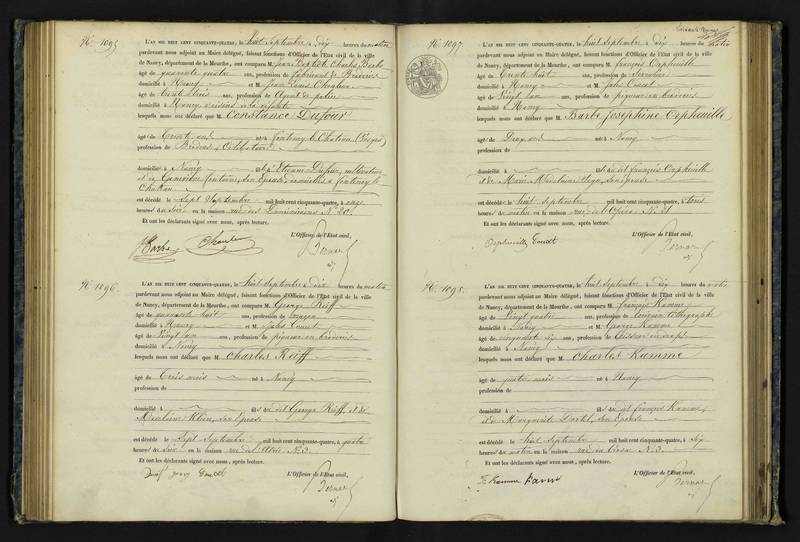 No. 1095
L'AN MIL HUIT CENT CINQUANTE-QUATRE, le huit Septembre à dix heures du matin
pardevant nous adjoint au Maire délégué, faisant fonctions d'Officier de l'Etat civil de la ville
de Nancy, département de la Meurthe, ont comparu M. Jean Baptiste Charles Barbe
âgé de quarante quatre ans, profession de fabricant de Broderies
domicilié à Nancy et M. Jean Louis
âgé de trente trois ans, profession de Agent de police
domicilié à Nancy
lesquels nous ont déclaré que M. Constance Dufour
âgé de trente ans né à fontenoy le Château (Vosges)
profession de Brodeuse, Célibataire
domicilié à Nancy fils d'Etienne Dufour, cultivateur
et de Geneviève son Epouse, domiciliés à fontenoy le
Château
est décédé le Sept Septembre mil huit cent cinquante-quatre, à onze
heures du Soir en la maison rue des Dominicains N. 20.
Et ont les déclarants signé avec nous, après lecture.
L'Officier de l'Etat civil,
Barbe
Bernard
No. 1096
L'AN MIL HUIT CENT CINQUANTE-QUATRE, le huit Septembre à dix heures du matin
pardevant nous adjoint au Maire délégué, faisant fonctions d'Officier de l'Etat civil de la ville
de Nancy, département de la Meurthe, ont comparu M. George Reiff
âgé de quarante huit ans, profession de
domicilié à Nancy et M. Jules
âgé de Vingt ans, profession de piqueur en broderies
domicilié à Nancy
lesquels nous ont déclaré que M. Charles Reiff
âgé de trois mois né à Nancy
profession de
domicilié à fils du dit George Reiff, et de
son Epouse
est décédé le Sept Septembre mil huit cent cinquante-quatre, à quatre
heures du Soir en la maison rue N. 3.
Et ont les déclarants signé avec nous, après lecture.
L'Officier de l'Etat civil,
Bernard
No. 1097
L'AN MIL HUIT CENT CINQUANTE-QUATRE, le huit Septembre à dix heures du matin
pardevant nous adjoint au Maire délégué, faisant fonctions d'Officier de l'Etat civil de la ville
de Nancy, département de la Meurthe, ont comparu M. françois Orphuille
âgé de trente huit ans, profession de Serrurier
domicilié à Nancy et M. Jules
âgé de Vingt ans, profession de piqueur en broderies
domicilié à Nancy
lesquels nous ont déclaré que M. Barbe Joséphine Orphuille
âgé de né à Nancy
profession de
domicilié à fils du dit françois Orphuille
et de Marie Madeleine son Epouse
est décédé le huit Septembre mil huit cent cinquante-quatre, à trois
heures du matin en la maison rue
Et ont les déclarants signé avec nous, après lecture.
L'Officier de l'Etat civil,
Bernard
No. 1098.
L'AN MIL HUIT CENT CINQUANTE-QUATRE, le huit Septembre à dix heures du matin
pardevant nous adjoint au Maire délégué, faisant fonctions d'Officier de l'Etat civil de la ville
de Nancy, département de la Meurthe, ont comparu M. françois Kamme
âgé de Vingt quatre ans, profession de lithographe
domicilié à Nancy et M. George Kamme
âgé de cinquante ans, profession de
domicilié à Nancy
lesquels nous ont déclaré que M. Charles Kamme
âgé de quatre mois né à Nancy
profession de
domicilié à fils du dit françois Kamme,
et de Marguerite son Epouse
est décédé le huit Septembre mil huit cent cinquante-quatre, à Six
heures du matin en la maison rue
Et ont les déclarants signé avec nous, après lecture.
L'Officier de l'Etat civil,
Kamme Kamme
Bernard